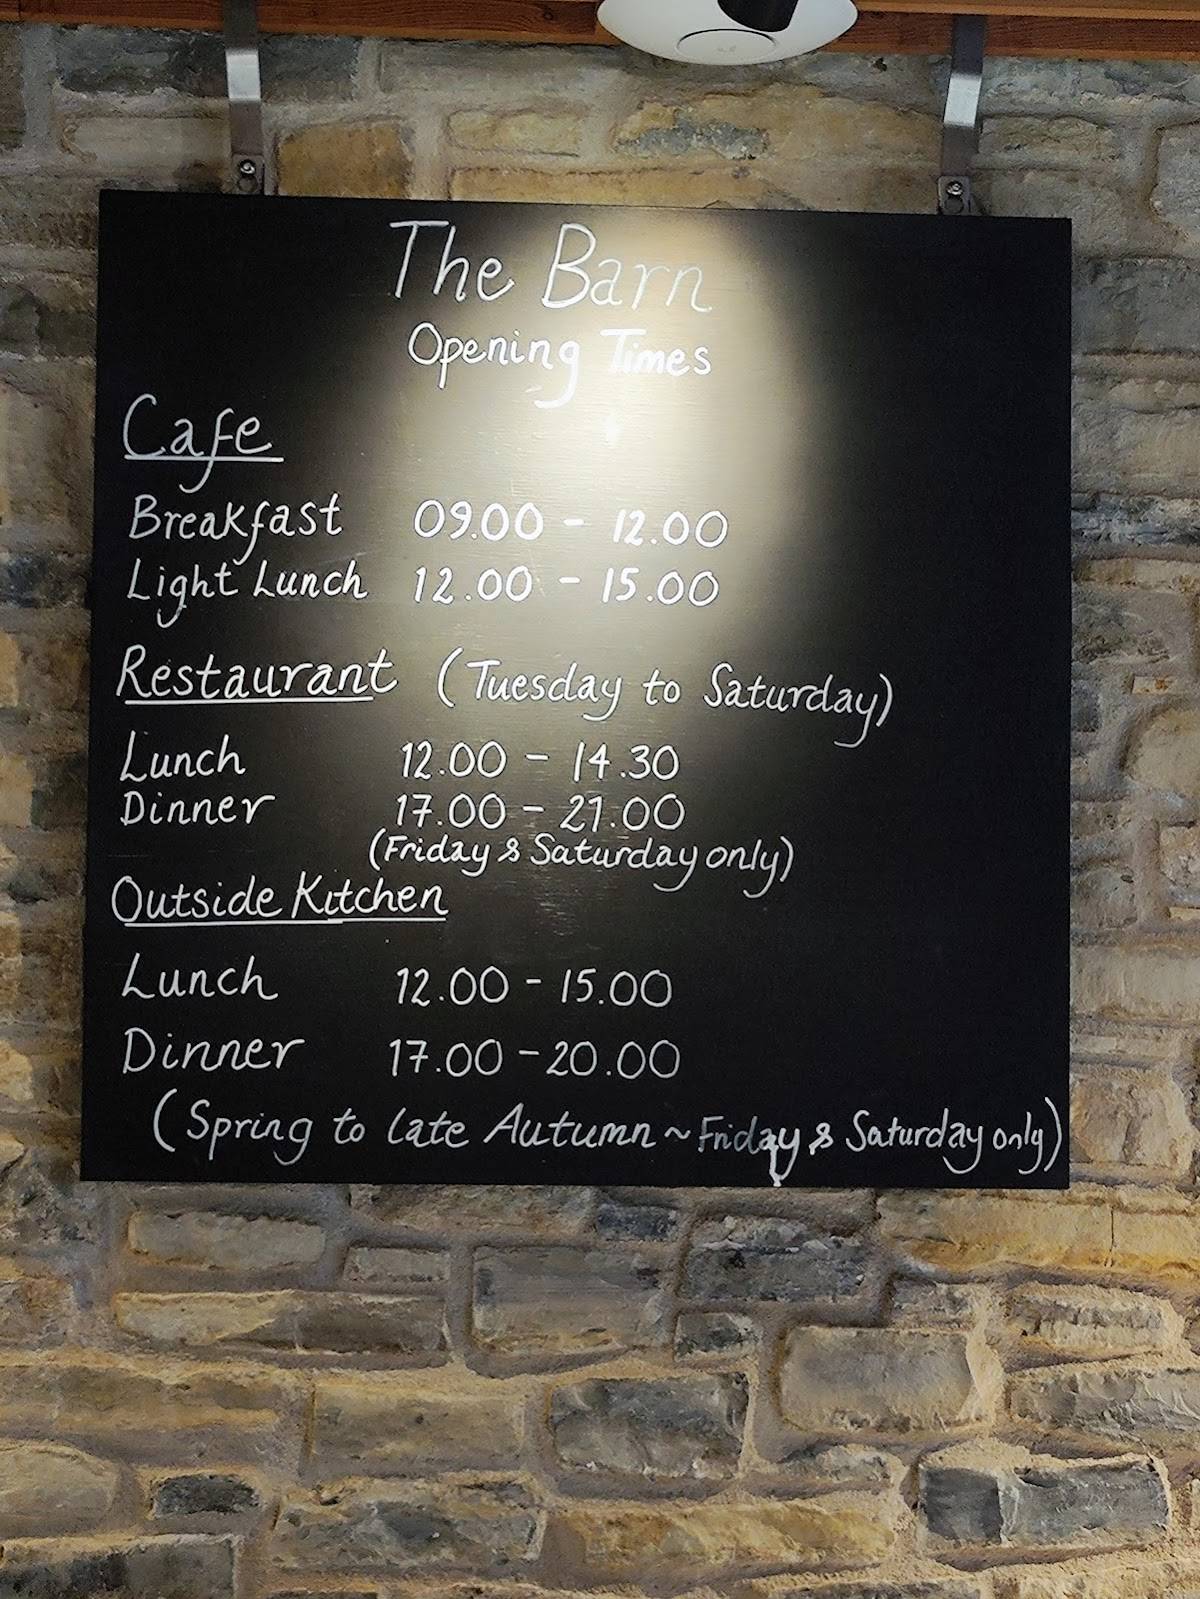 The Barn
Opening Times
Cafe
Breakfast 09.00 - 12.00
Light Lunch 12.00 - 15.00
Restaurant (Tuesday to Saturday)
Lunch 12.00 - 14.30
Dinner 17.00 - 21.00
(Friday & Saturday only)
Outside Kitchen
Lunch 12.00 - 15.00
Dinner 17.00 - 20.00
(Spring to late Autumn ~ Friday & Saturday only)